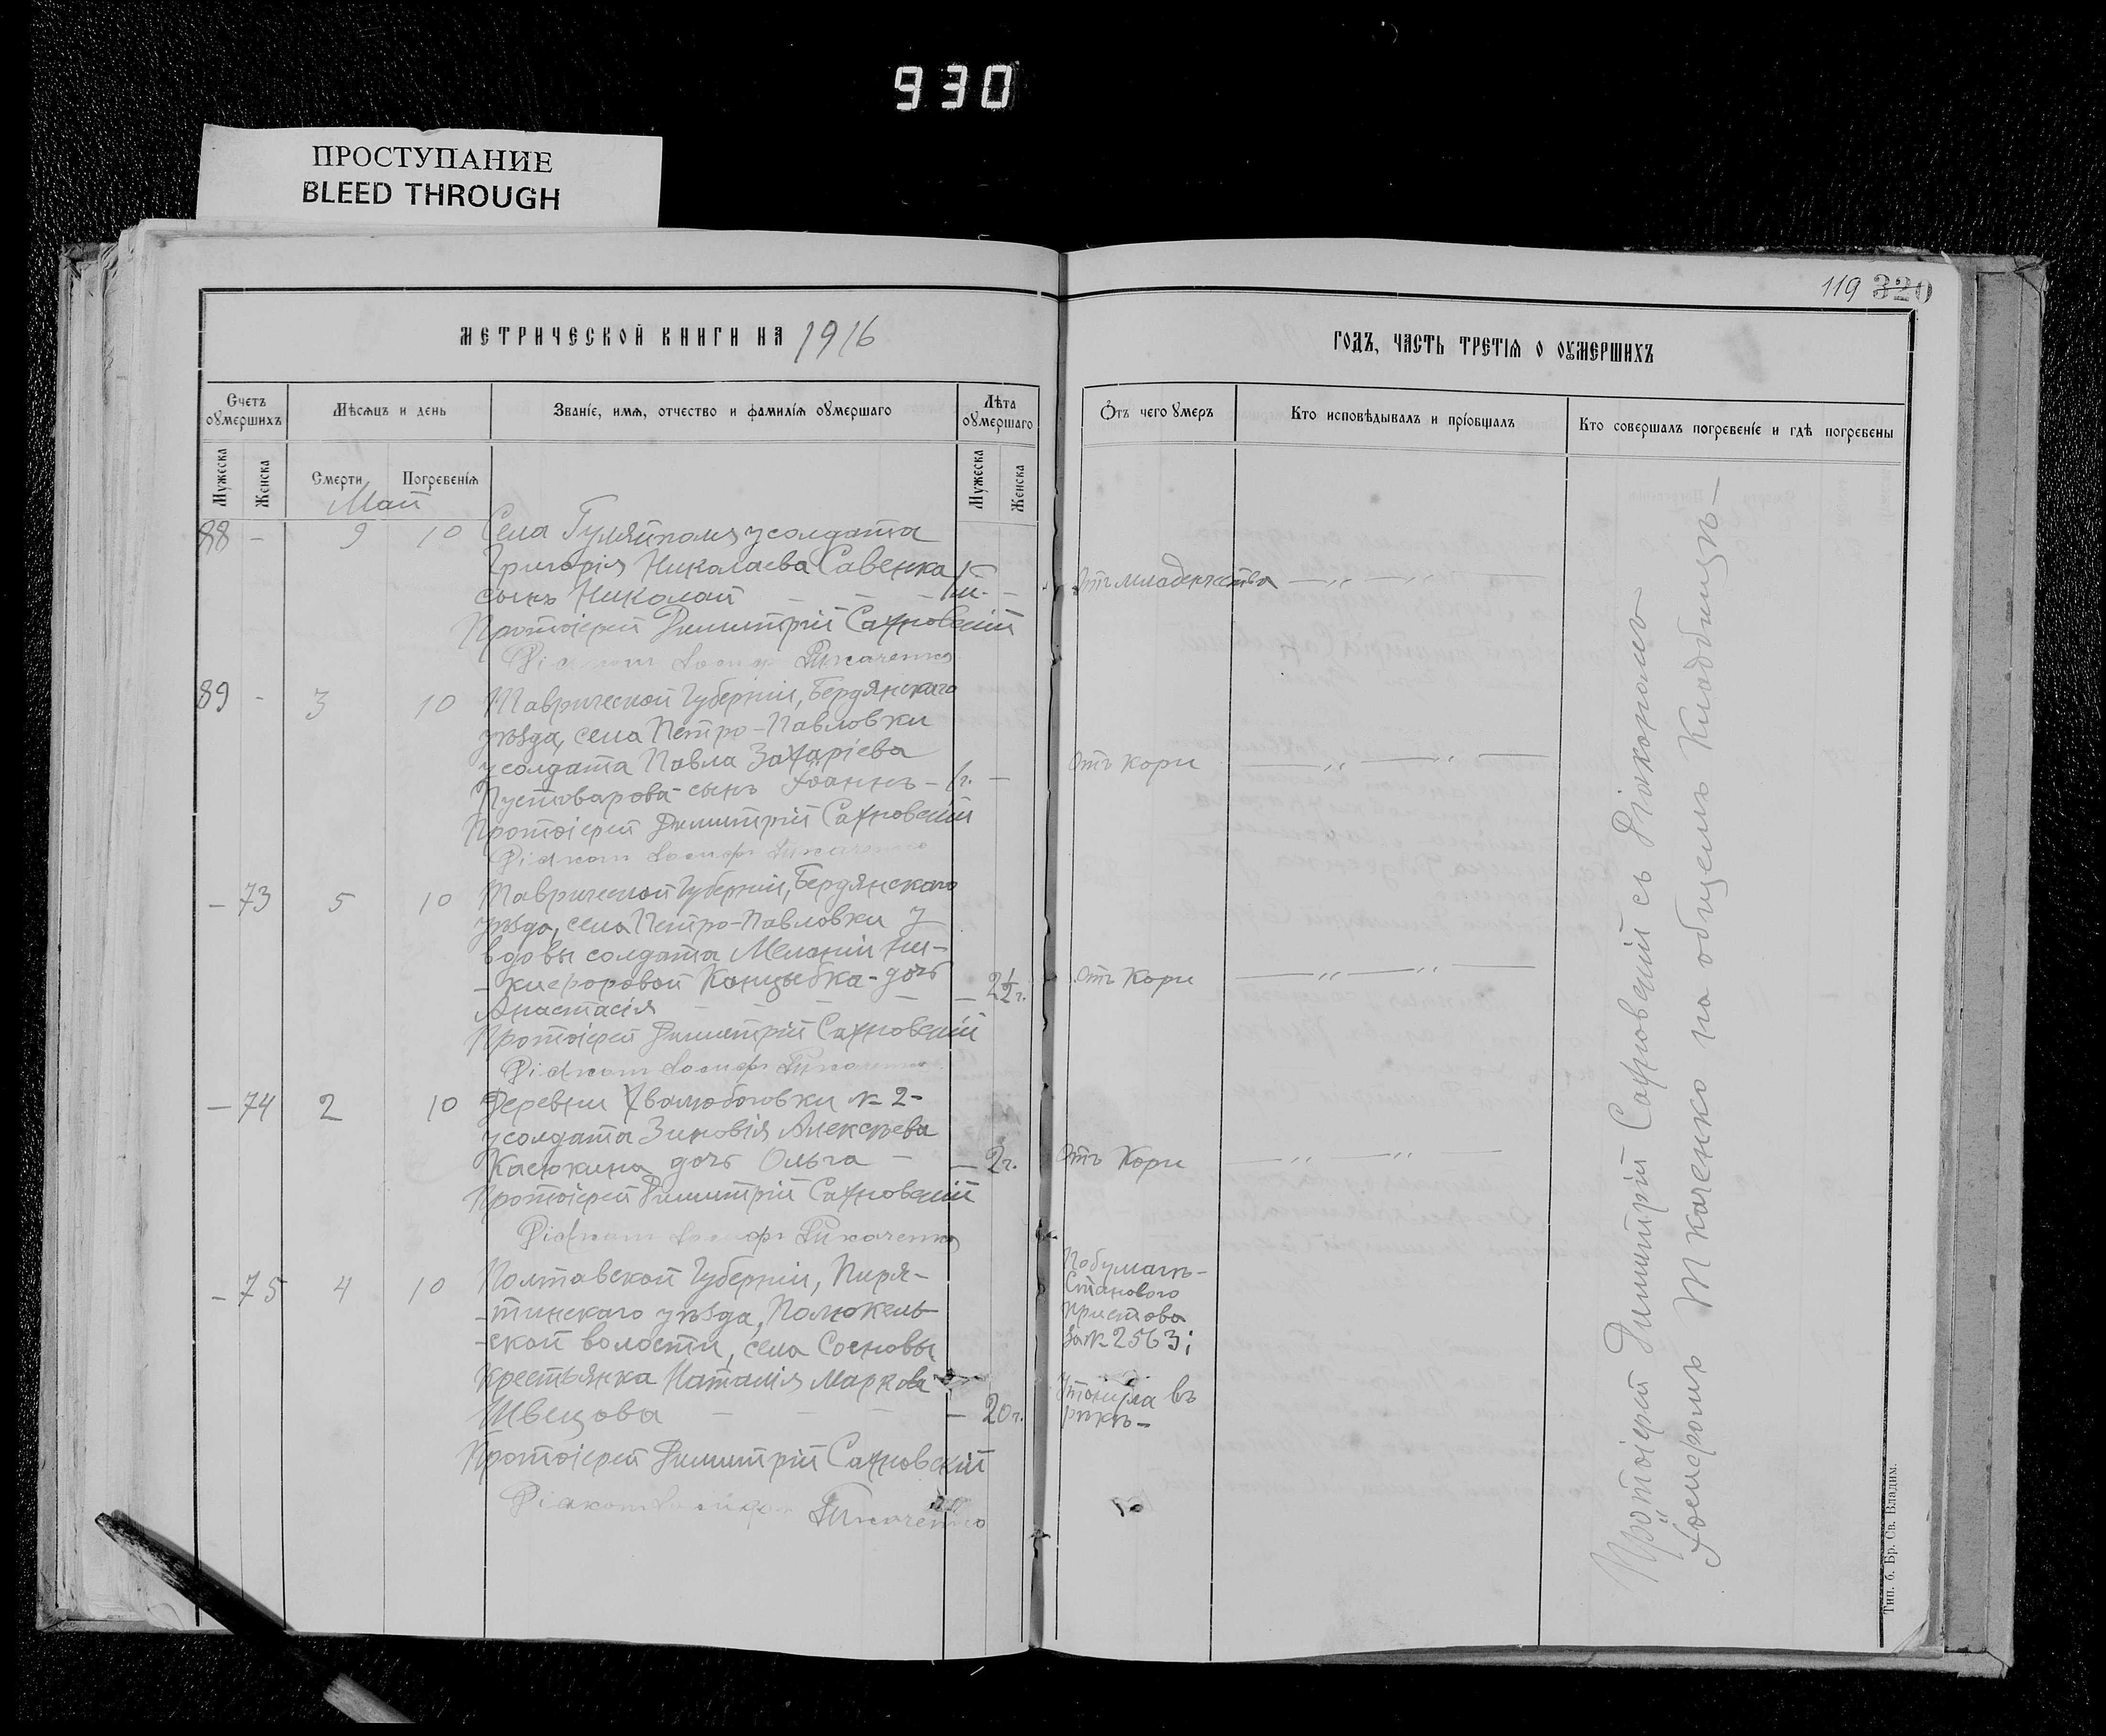 930
ПРОСТУПАНИЕ
BLEED THROUGH
119 320
МЕТРИЧЕСКОЙ КНИГИ НА 1916
ГОДЪ, ЧАСТЬ ТРЕТІЯ О ОУМЕРШИХЪ
Счетъ оумершихъ
Мѣсяцъ и день
Званіе, имя, отчество и фамилія оумершаго
Лѣта оумершаго
Отъ чего умеръ
Кто исповѣдывалъ и пріобщалъ
Кто совершалъ погребеніе и гдѣ погребены
Мужеска
Женска
Смерти
Погребенія
Мужеска
Женска
Май
88 - 9 10 Села Гуляйполя у солдата
Григорія Николаева Савенка
сынъ Николай - - - 1 м. -
Отъ младенчества —„—„—
Протоіерей Димитрій Сахновскій
Діаконъ Іосифъ Ткаченко
89 - 3 10 Таврической Губерніи, Бердянскаго
уѣзда, села Петро-Павловки
у солдата Павла Захаріева
Пустоварова - сынъ Іоаннъ - 1 г. -
Отъ Кори —„—„—
Протоіерей Димитрій Сахновскій
Діаконъ Іосифъ Ткаченко
- 73 5 10 Таврической Губерніи, Бердянскаго
уѣзда, села Петро-Павловки у
вдовы солдата Меланіи Ни-
-кифоровой Канцыбка - дочь
Анастасія - - - - 2½ г.
Отъ Кори —„—„—
Протоіерей Димитрій Сахновскій
Діаконъ Іосифъ Ткаченко
- 74 2 10 Деревни Хволюбовки № 2-
у солдата Зиновія Алексѣева
Касюкина дочь Ольга - - 2 г.
Отъ Кори —„—„—
Протоіерей Димитрій Сахновскій
Діаконъ Іосифъ Ткаченко
- 75 4 10 Полтавской Губерніи, Пиря-
-тинскаго уѣзда,
-ской волости, села Сосновы
крестьянка Наталія Маркова
Швецова - - - - 20 г.
По бумагѣ
Станового
пристава
за № 2563;
Утонула въ
рѣкѣ -
Протоіерей Димитрій Сахновскій
Діаконъ Іосифъ Ткаченко
Протоіерей Димитрій Сахновскій съ Діакономъ
Іосифомъ Ткаченко на общемъ Кладбищѣ -
Тип. б. Бр. Св. Владим.